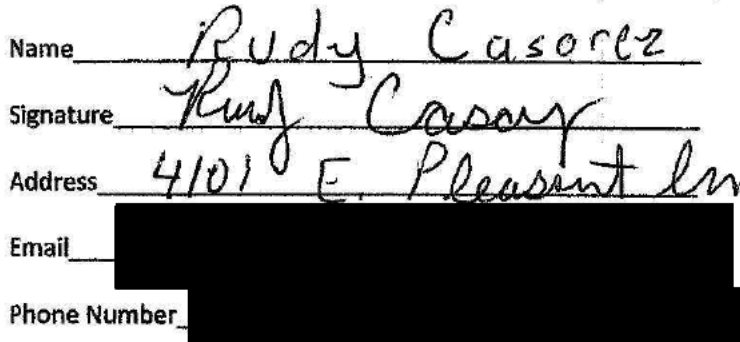 Name Rudy Casorez
Signature Rudy Casarez
Address 4101 E. Pleasant Ln
Email
Phone Number